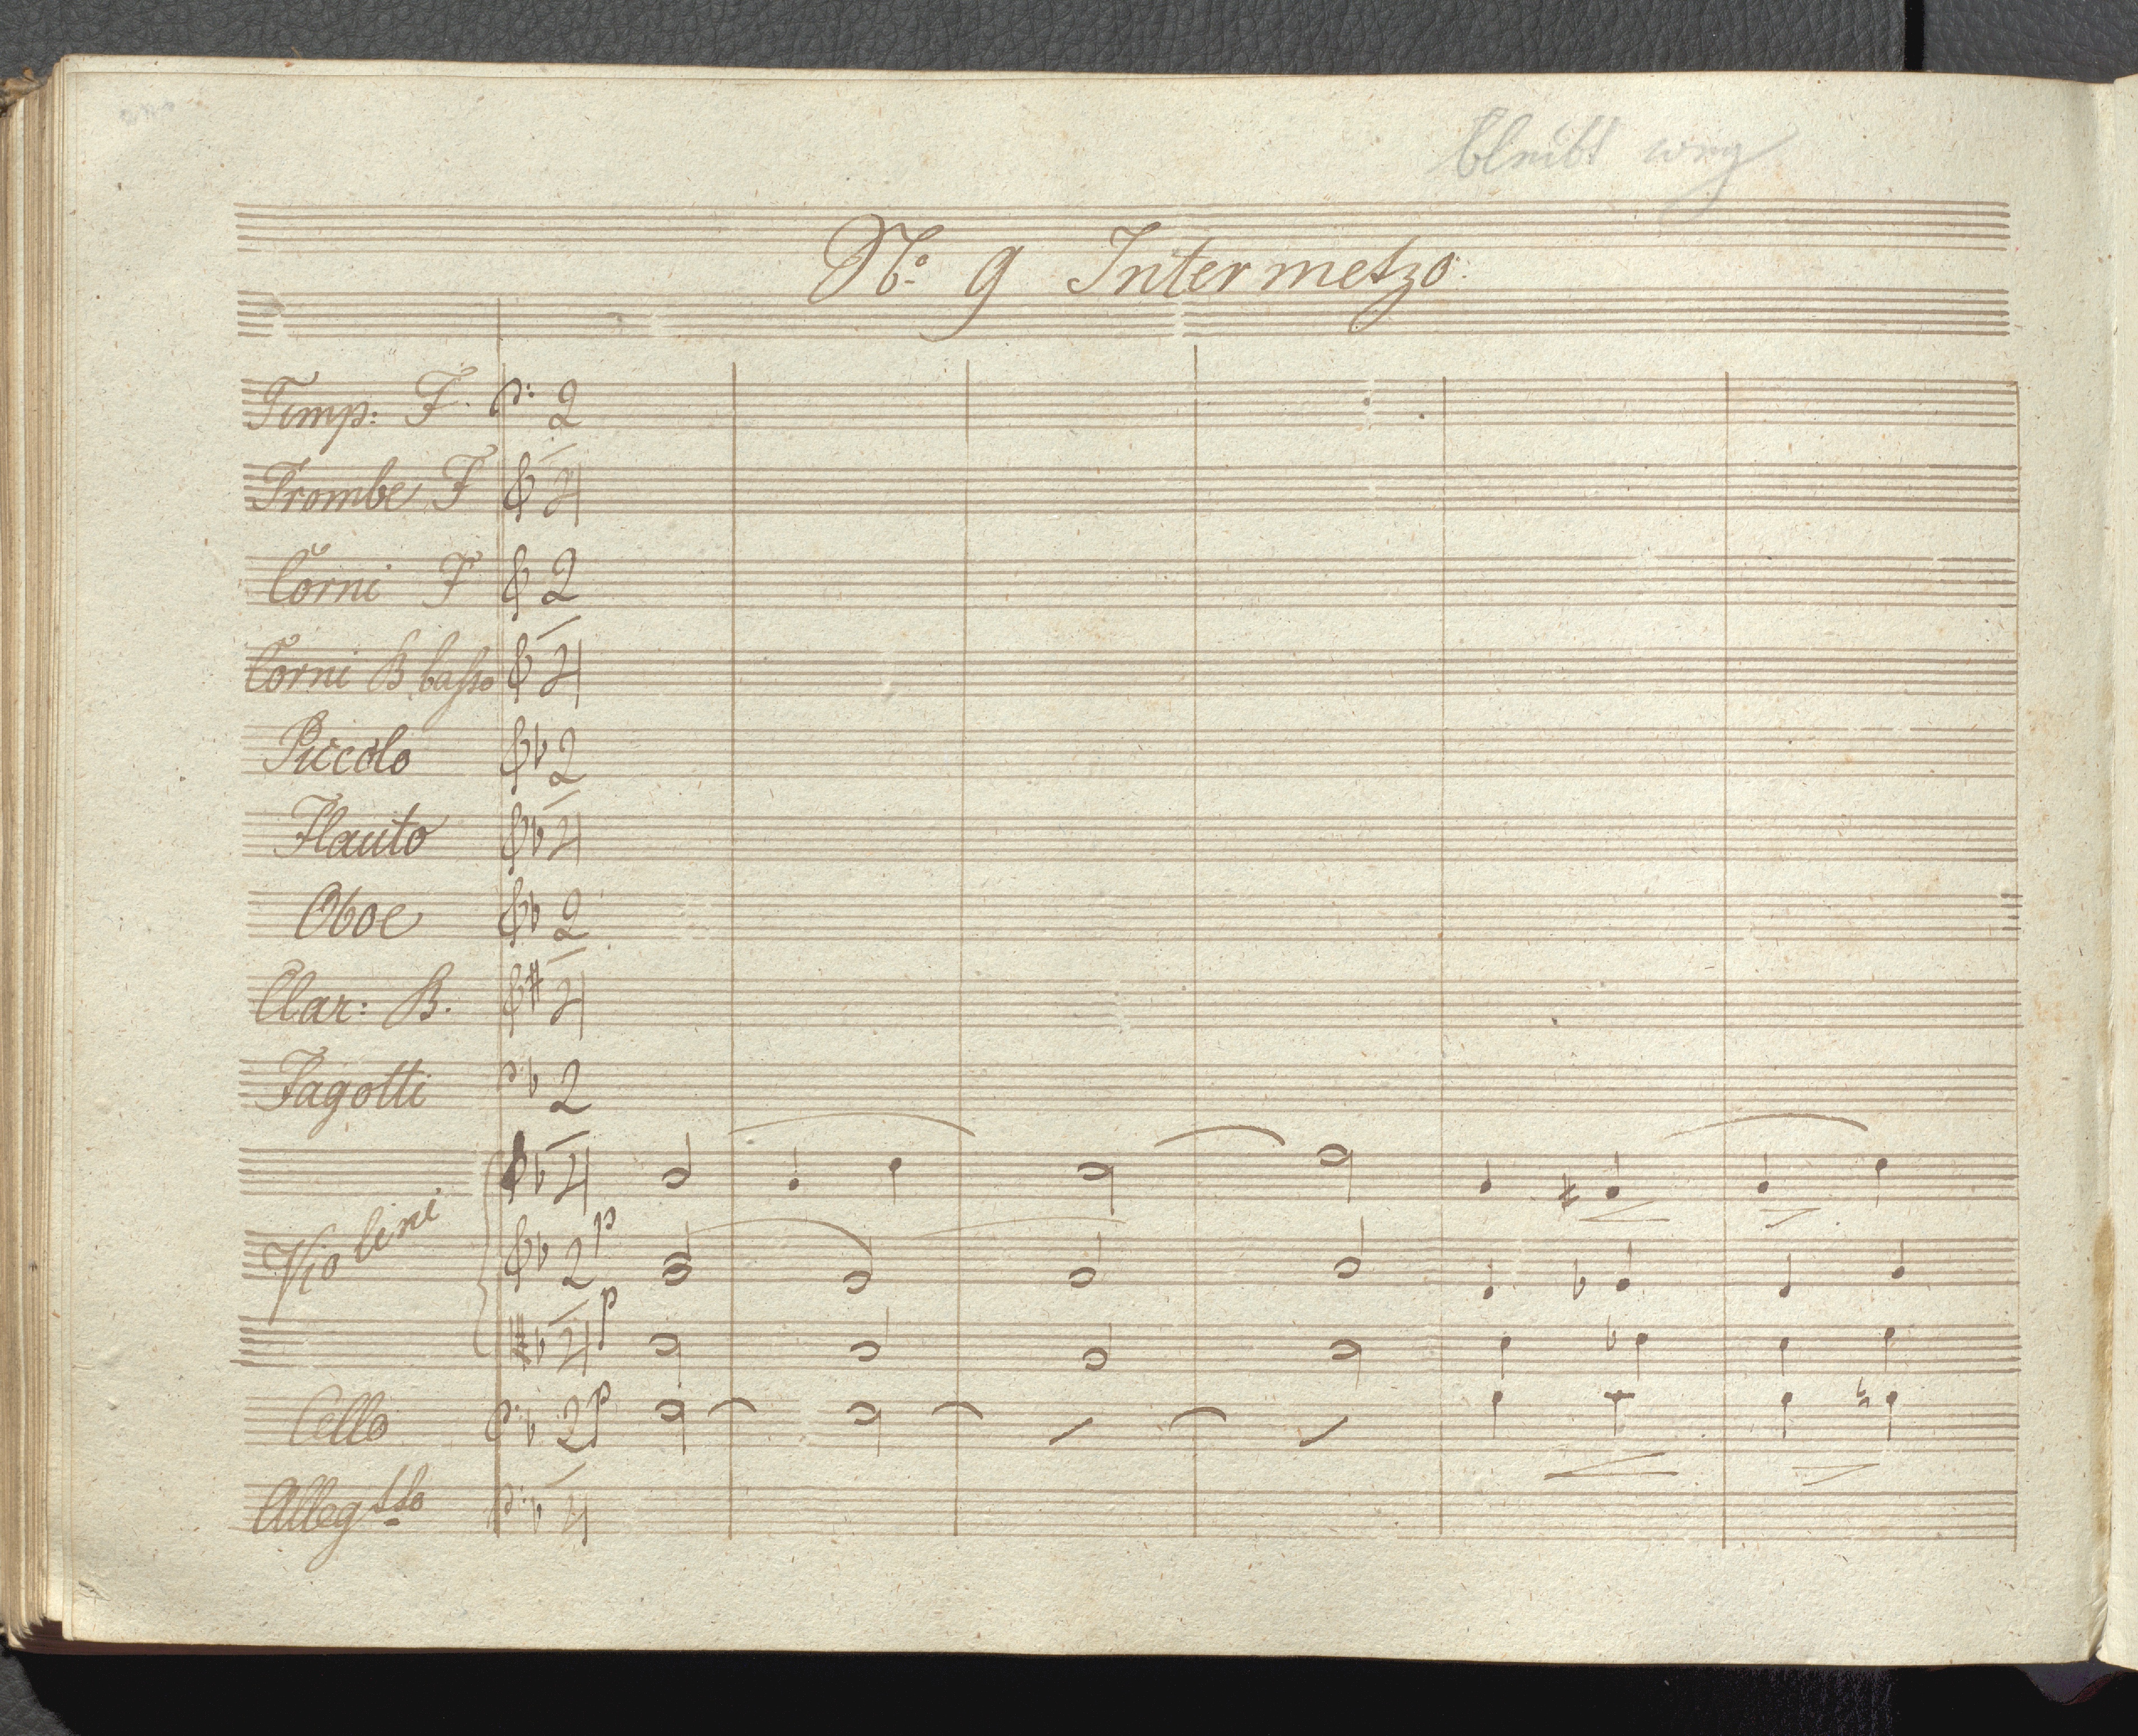 bleibt weg
No. 9 Intermetzo.
Timp: F. 2
4
Trombe F 2
4
Corni F 2
4
Corni B basso 2
4
Piccolo 2
4
Flauto 2
4
Oboe 2
4
Clar: B. 2
4
Fagotti 2
4
Violini 2
4
p
p
Cello 2
4
p
Allegtto